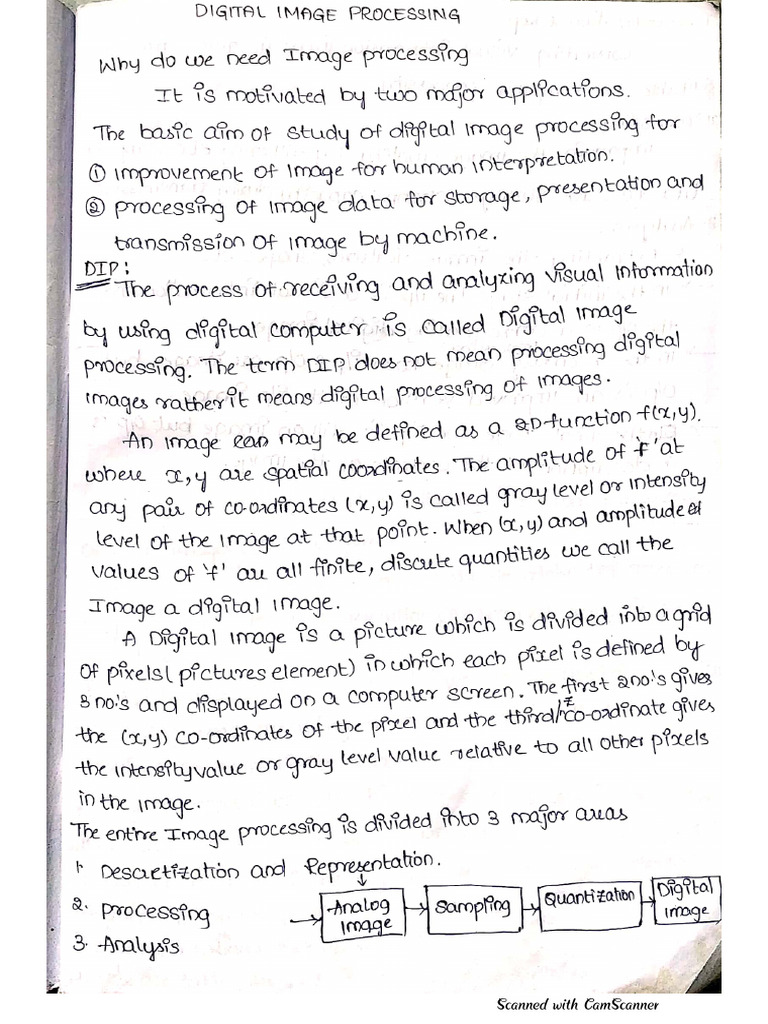 DIGITAL IMAGE PROCESSING
Why do we need Image processing
It is motivated by two major applications.
The basic aim of study of digital image processing for
① improvement of image for human interpretation.
② processing of image data for storage, presentation and
transmission of image by machine.
DIP:
The process of receiving and analyzing visual information
by using digital computer is called Digital image
processing. The term DIP does not mean processing digital
images rather it means digital processing of images.
An image may be defined as a 2D-function f(x,y).
where x, y are spatial coordinates. The amplitude of 'f' at
any pair of co-ordinates (x,y) is called gray level or intensity
level of the image at that point. When (x,y) and amplitude
values of 'f' are all finite, discute quantities we call the
Image a digital image.
A Digital image is a picture which is divided into a grid
of pixels (pictures element) in which each pixel is defined by
3 no's and displayed on a computer screen. The first 2 no's gives
the (x,y) co-ordinates of the pixel and the third/z co-ordinate gives
the intensity value or gray level value relative to all other pixels
in the image.
The entire Image processing is divided into 3 major areas
1. Descretization and Representation.
2. processing
3. Analysis
Analog image
Sampling
Quantization
Digital image
Scanned with CamScanner